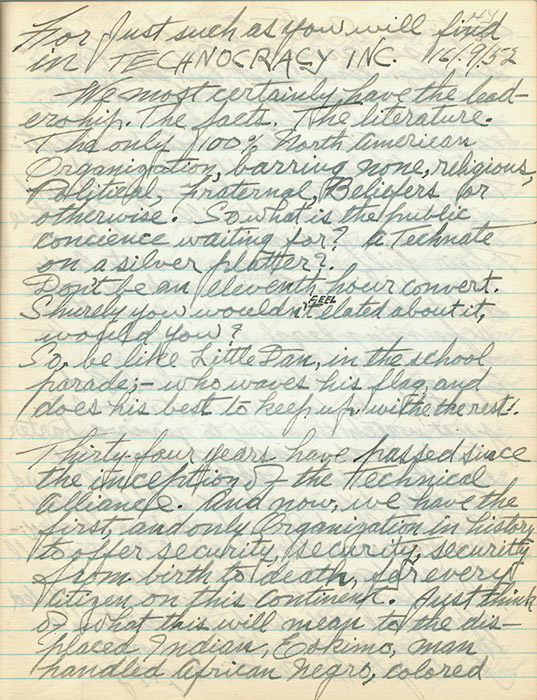 For just such as you will find
in TECHNOCRACY INC. 16/9/52
We most certainly have the lead-
ership. The facts. The literature.
The only 100% North American
Organization, barring none, religious,
Political, Fraternal, Beliefers or
otherwise. So what is the public
concience waiting for? A Technate
on a silver platter?.
Don't be an eleventh hour convert.
Shurely you wouldn't FEEL elated about it,
would you?
So, be like Little Dan, in the school
parade;- who waves his flag, and
does his best to keep up withe the rest!.
Thirty-four years have passed since
the inception of the Technical
Alliance. And now, we have the
first, and only Organization in history
to offer security, security, security
from birth to death, for every
Citizen on this Continent. Just think
of what this will mean to the dis-
placed Indian, Eskimo, man
handled African Negro, colored